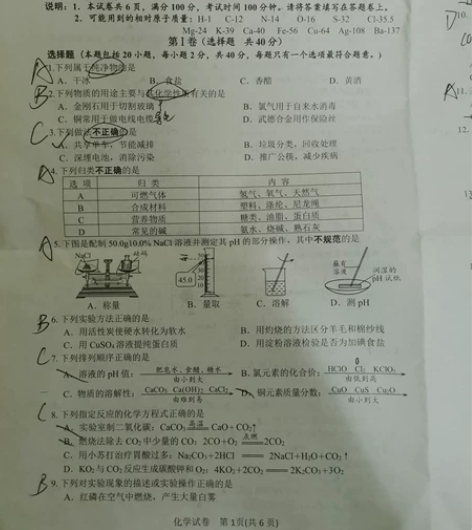 说明：1．本试卷共 6 页，满分 100 分，考试时间 100 分钟。请将答案填写在答题卷上。
2．可能用到的相对原子质量：H-1 C-12 N-14 O-16 S-32 Cl-35.5
Mg-24 K-39 Ca-40 Fe-56 Cu-64 Ag-108 Ba-137
第Ⅰ卷（选择题 共 40 分）
选择题（本题包括 20 小题，每小题 2 分，共 40 分，每题只有一个选项最符合题意。）
A 1.下列属于纯净物的是
A．干冰 B．食盐 C．香醋 D．黄酒
B 2.下列物质的用途主要与其化学性质有关的是
A．金刚石用于切割玻璃 B．氯气用于自来水消毒
C．铜常用于做电线电缆 D．武德合金用作保险丝
C 3.下列做法不正确的是
A．共享单车，节能减排 B．垃圾分类，回收处理
C．深埋电池，消除污染 D．推广公筷，减少疾病
4.下列归类不正确的是
选项 归类 内容
A 可燃气体 氢气、氧气、天然气
B 合成材料 塑料、涤纶、尼龙绳
C 营养物质 糖类、油脂、蛋白质
D 常见的碱 氨水、烧碱、熟石灰
5.下图是配制 50.0g10.0% NaCl 溶液并测定其 pH 的部分操作，其中不规范的是
NaCl 砝码
45.0
蘸有溶液 润湿的 pH 试纸
A．称量 B．量取 C．溶解 D．测 pH
B 6.下列实验方法正确的是
A．用活性炭使硬水转化为软水 B．用灼烧的方法区分羊毛和棉纱线
C．用 CuSO₄ 溶液提纯蛋白质 D．用淀粉溶液检验是否为加碘食盐
C 7.下列排列顺序正确的是
A．溶液的 pH 值：肥皂水，食醋，糖水 由小到大 B．氯元素的化合价：HClO Cl₂ KClO₃ 由低到高
C．物质的溶解性：CaCO₃ Ca(OH)₂ CaCl₂ 由难到易 D．铜元素质量分数：CuO CuS Cu₂O 由小到大
C 8.下列指定反应的化学方程式正确的是
A．实验室制二氧化碳：CaCO₃ 高温 CaO + CO₂↑
B．燃烧法除去 CO₂ 中少量的 CO：2CO + O₂ 点燃 2CO₂
C．用小苏打治疗胃酸过多：Na₂CO₃+2HCl 2NaCl+H₂O+CO₂↑
D．KO₂ 与 CO₂ 反应生成碳酸钾和 O₂：4KO₂+2CO₂ 2K₂CO₃+3O₂
B 9.下列对实验现象的描述或实验操作正确的是
A．红磷在空气中燃烧，产生大量白雾
化学试卷 第 1页(共 6 页)
D 10.
A 11.
12.